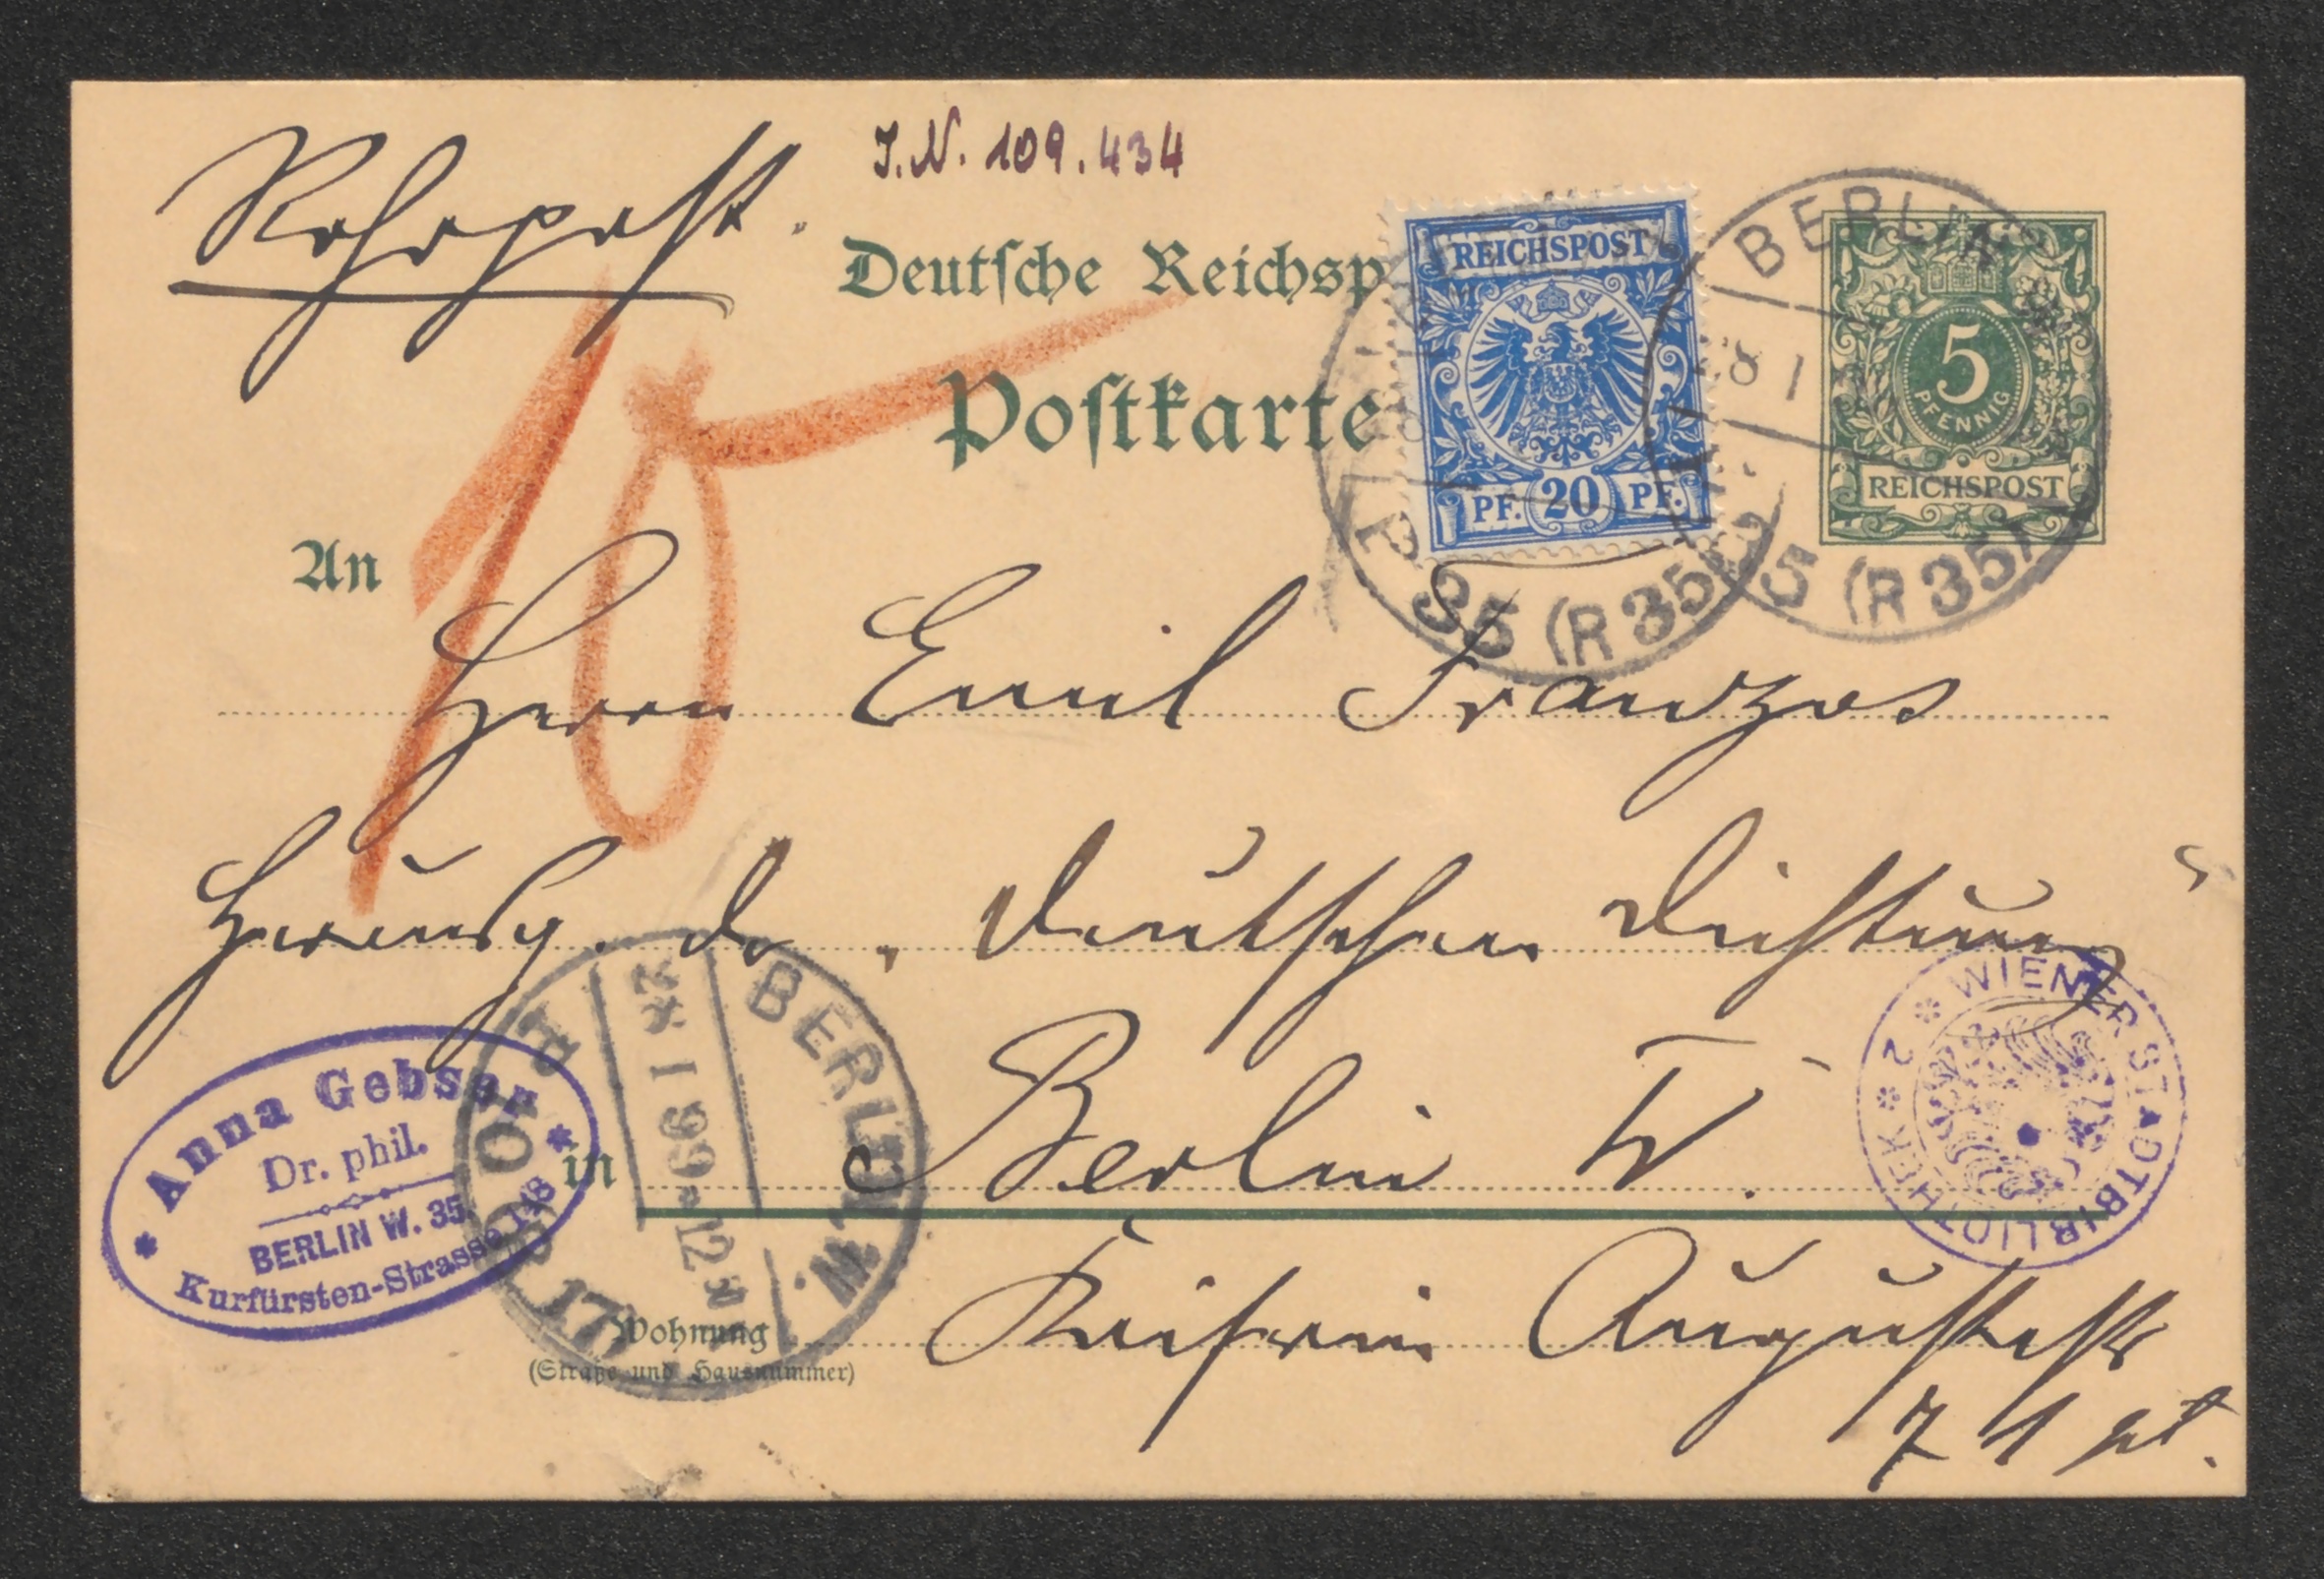 Rohrpost.
J.N. 109.434
Deutsche Reichsp
Postkarte
REICHSPOST
PF. 20 PF.
BERLIN
P 35 (R 35)
BERLIN
35 (R 35)
5
PFENNIG
REICHSPOST
10
An
Herrn Emil Franzos
Herausg. der „Deutschen Dichtung"
in Berlin W.
Anna Gebser
Dr. phil.
BERLIN W. 35.
Kurfürsten-Strasse 148
BERLIN, W.
1 99-12
* WIENER STADTBIBLIOTHEK *
Wohnung
(Straße und Hausnummer)
Kaiserin Augustastr
71 pt.